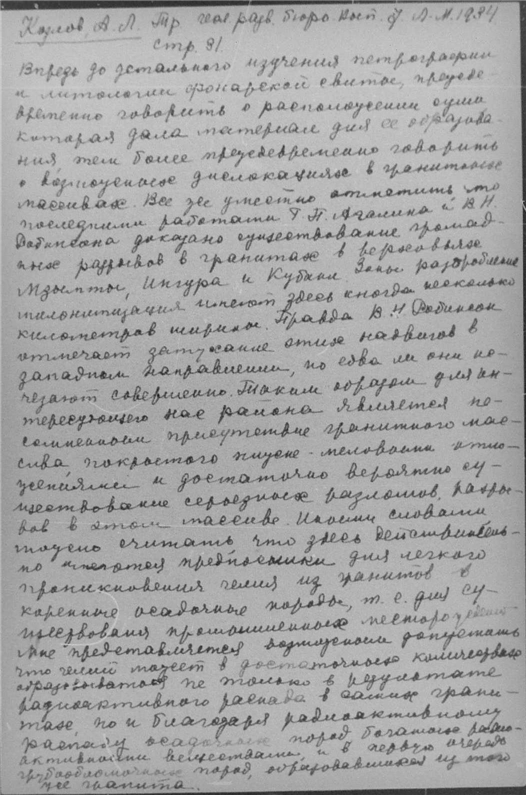 Козлов, А. Л. Тр. геол. разв. бюро вып. Л.-М. 1934
стр. 81.
Впредь до детального изучения петрографии
и литологии фонарской свиты, преждe-
временно говорить о расположении суши
которая дала материал для ее образова-
ния тем более преждевременно говорить
о возможных дислокациях в гранитных
массивах. Все же уместно отметить что
последними работами Г. П. Агалина и В. Н.
Робинсона доказано существование громад-
ных разрывов в гранитах в верховьях
Мзымты, Ингура и Кубани. Зоны раздробления
милонитизация имеют здесь иногда несколько
километров ширины. Правда В. Н. Робинсон
отмечает затухание этих надвигов в
западном направлении, но едва ли они ис-
чезают совершенно. Таким образом для ин-
тересующего нас района является не-
сомненным присутствие гранитного мас-
сива, покрытого нижне-меловыми отло-
жениями и достаточно вероятно су-
ществование серьезных разломов, разры-
вов в этом массиве. Иными словами
можно считать что здесь действитель-
но имеются предпосылки для легкого
проникновения гелия из гранитов в
коренные осадочные породы, т. е. для су-
ществования промышленных месторождений
Мне представляется возможным допустить
что гелий может в достаточных количествах
образоваться не только в результате
радиоактивного распада в самих грани-
тах, но и благодаря радиоактивному
распаду осадочных пород богатых радио-
активными веществами, и в первую очередь
грубообломочных пород, образовавшихся из того
же гранита.